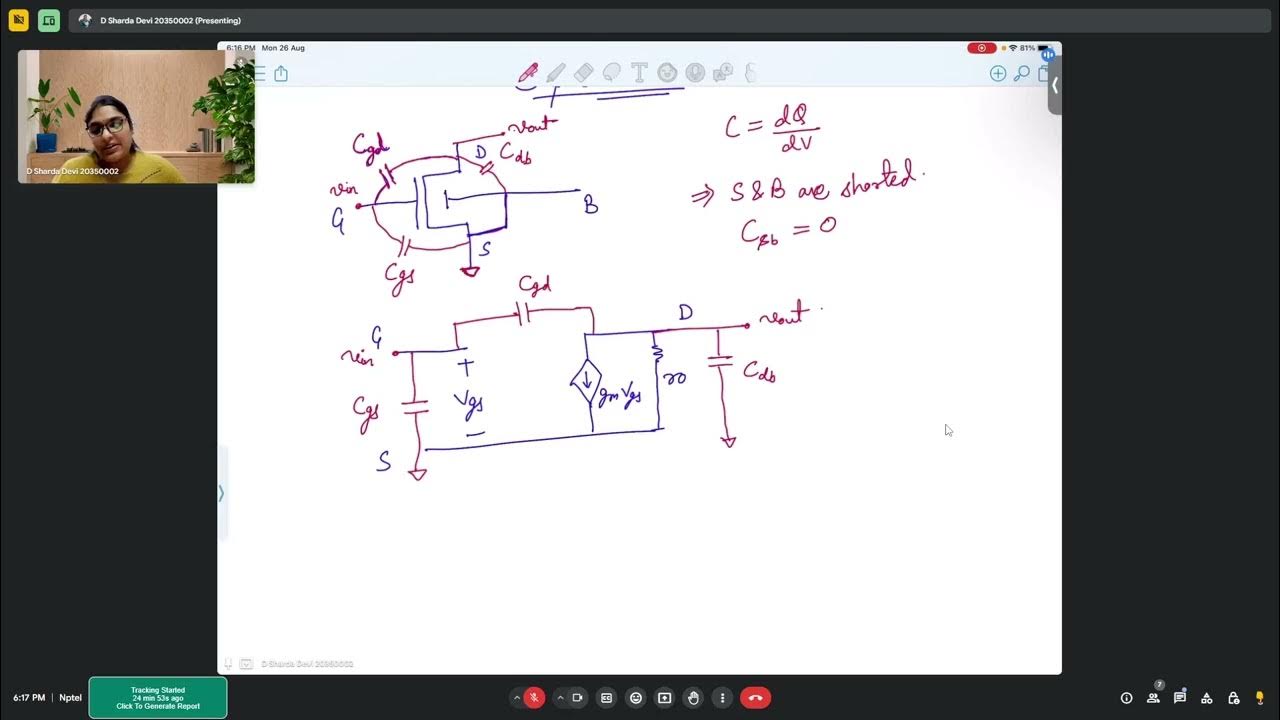 D Sharda Devi 20350002 (Presenting)
6:16 PM Mon 26 Aug
81%
D Sharda Devi 20350002
Cgd
vout
D
Cdb
vin
G
B
S
Cgs
C = dQ/dV
⇒ S & B are shorted.
Csb = 0
Cgd
G
D
vout
vin
+
Vgs
−
Cgs
gmVgs
ro
Cdb
S
D Sharda Devi 20350002
6:17 PM | Nptel
Tracking Started
24 min 53s ago
Click To Generate Report
7